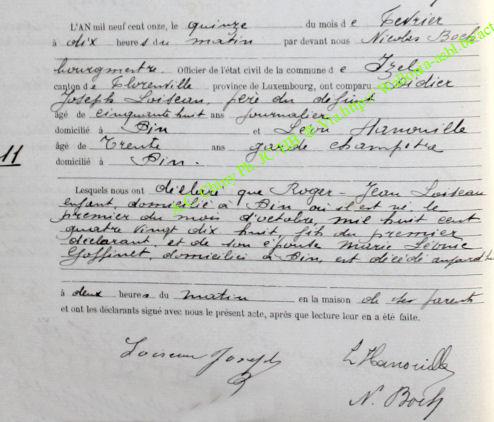 L'AN mil neuf cent onze, le quinze du mois de Février
à dix heures du matin par devant nous Nicolas Boch
bourgmestre Officier de l'état civil de la commune de Izel
canton de Florenville province de Luxembourg, ont comparu Didier
Joseph Loiseau, père du défunt
âgé de cinquante huit ans journalier
domicilié à Pin et Léon Hanouille
11
âgé de Trente ans garde champêtre
domicilié à Pin.
Lesquels nous ont déclaré que Roger-Jean Loiseau
enfant, domicilié à Pin où il est né le
premier du mois d'octobre, mil huit cent
quatre vingt dix huit fils du premier
déclarant, et de son épouse Marie Léonie
Goffinet, domiciliés à Pin, est décédé aujourd'hui
à deux heures du matin en la maison de ses parents
et ont les déclarants signé avec nous le présent acte, après que lecture leur en a été faite.
Loiseau Joseph
L Hanouille
N. Boch